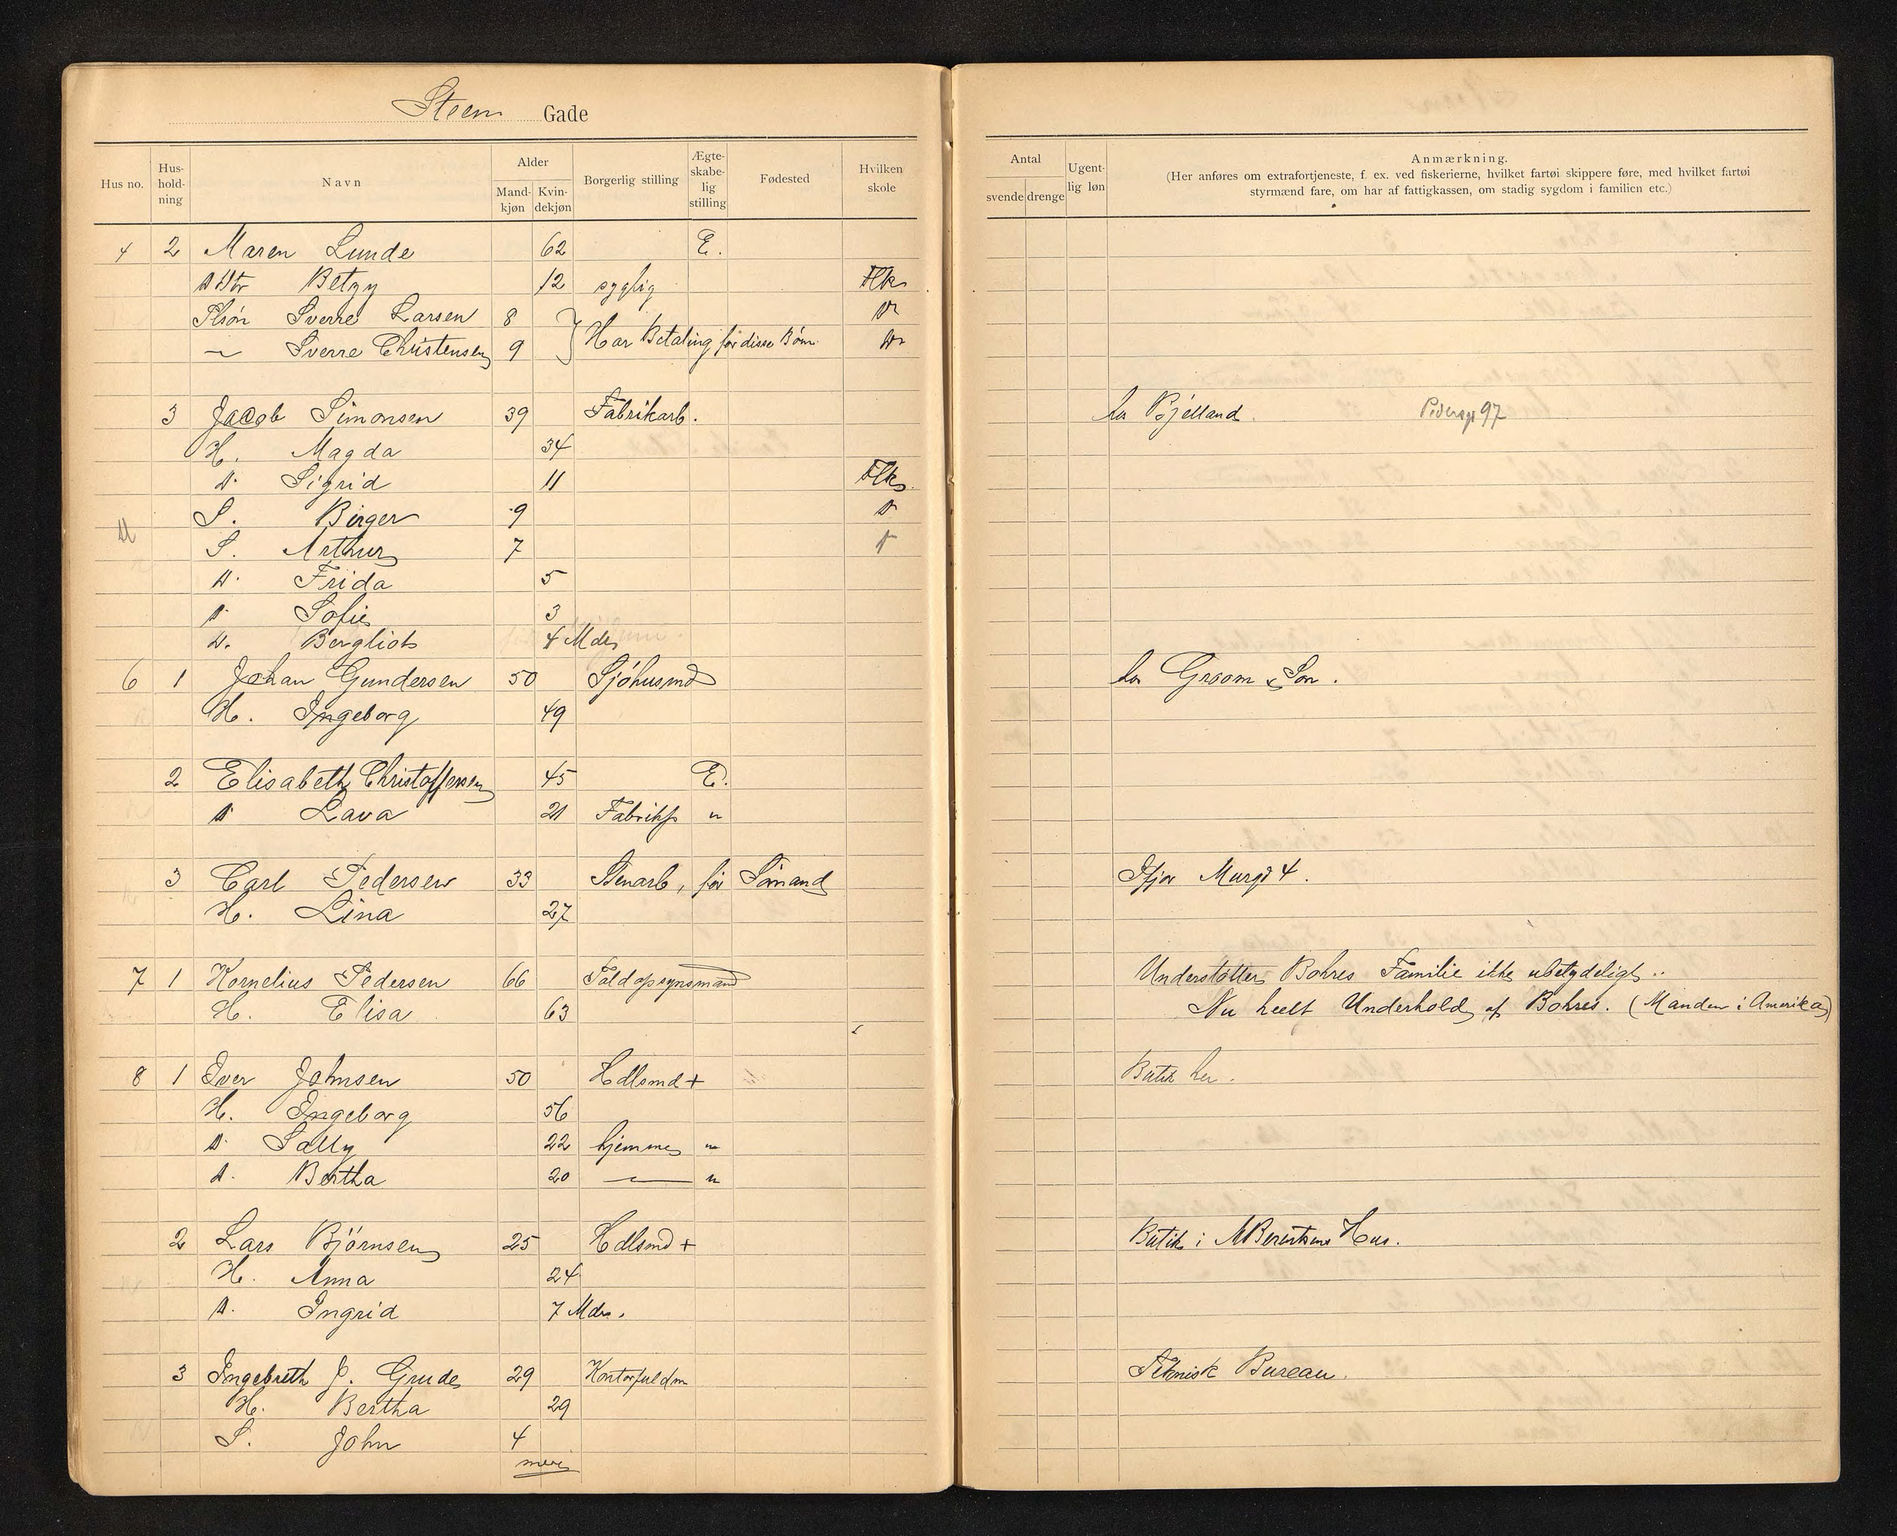 Steen Gade
Hus no. Hus-hold-ning Navn Alder Mand-kjøn Kvin-dekjøn Borgerlig stilling Ægte-skabe-lig stilling Fødested Hvilken skole
Antal svende drenge Ugent-lig løn Anmærkning.
(Her anføres om extrafortjeneste, f. ex. ved fiskerierne, hvilket fartøi skippere føre, med hvilket fartøi
styrmænd fare, om har af fattigkassen, om stadig sygdom i familien etc.)
4 2 Maren Lunde 62 E.
Betzy 12 syglig Flk
Plsøn Sverre Larsen 8
— Sverre Christensen 9 Har Betaling for disse Børn
3 Jacob Simonsen 39 Fabrikarb. hos Bjelland. Pedersgt 97
H. Magda 34
D. Sigrid 11 Flk
S. Birger 9 D
S. Arthur 7
D. Frida 5
D. Sofie 3
D. Bergliot 4 Mdr
6 1 Johan Gundersen 50 Sjøhusmd hos Groom & Søn.
H. Ingeborg 49
2 Elisabeth Christoffersen 45 E.
D Lava 21 Fabrikp u
3 Carl Pedersen 33 Stenarb, før Sømand Ifjor Murgt 4.
H. Lina 27
7 1 Kornelius Pedersen 66 Toldopsynsmand Understøtter Bohres Familie ikke ubetydeligt..
H. Elisa 63 Nu heelt Underhold af Bohres. (Manden i Amerika)
8 1 Iver Johnsen 50 Hdlsmd + Butik her.
H. Ingeborg 56
D. Sally 22 hjemme u
D. Bertha 20 — u
2 Lars Bjørnsen 25 Hdlsmd + Butik i Hus.
H. Anna 24
D. Ingrid 7 Mdr.
3 Ingebreth J. Grude 29 Kontorfuldm Teknisk Bureau.
H. Bertha 29
S. John 4
mere